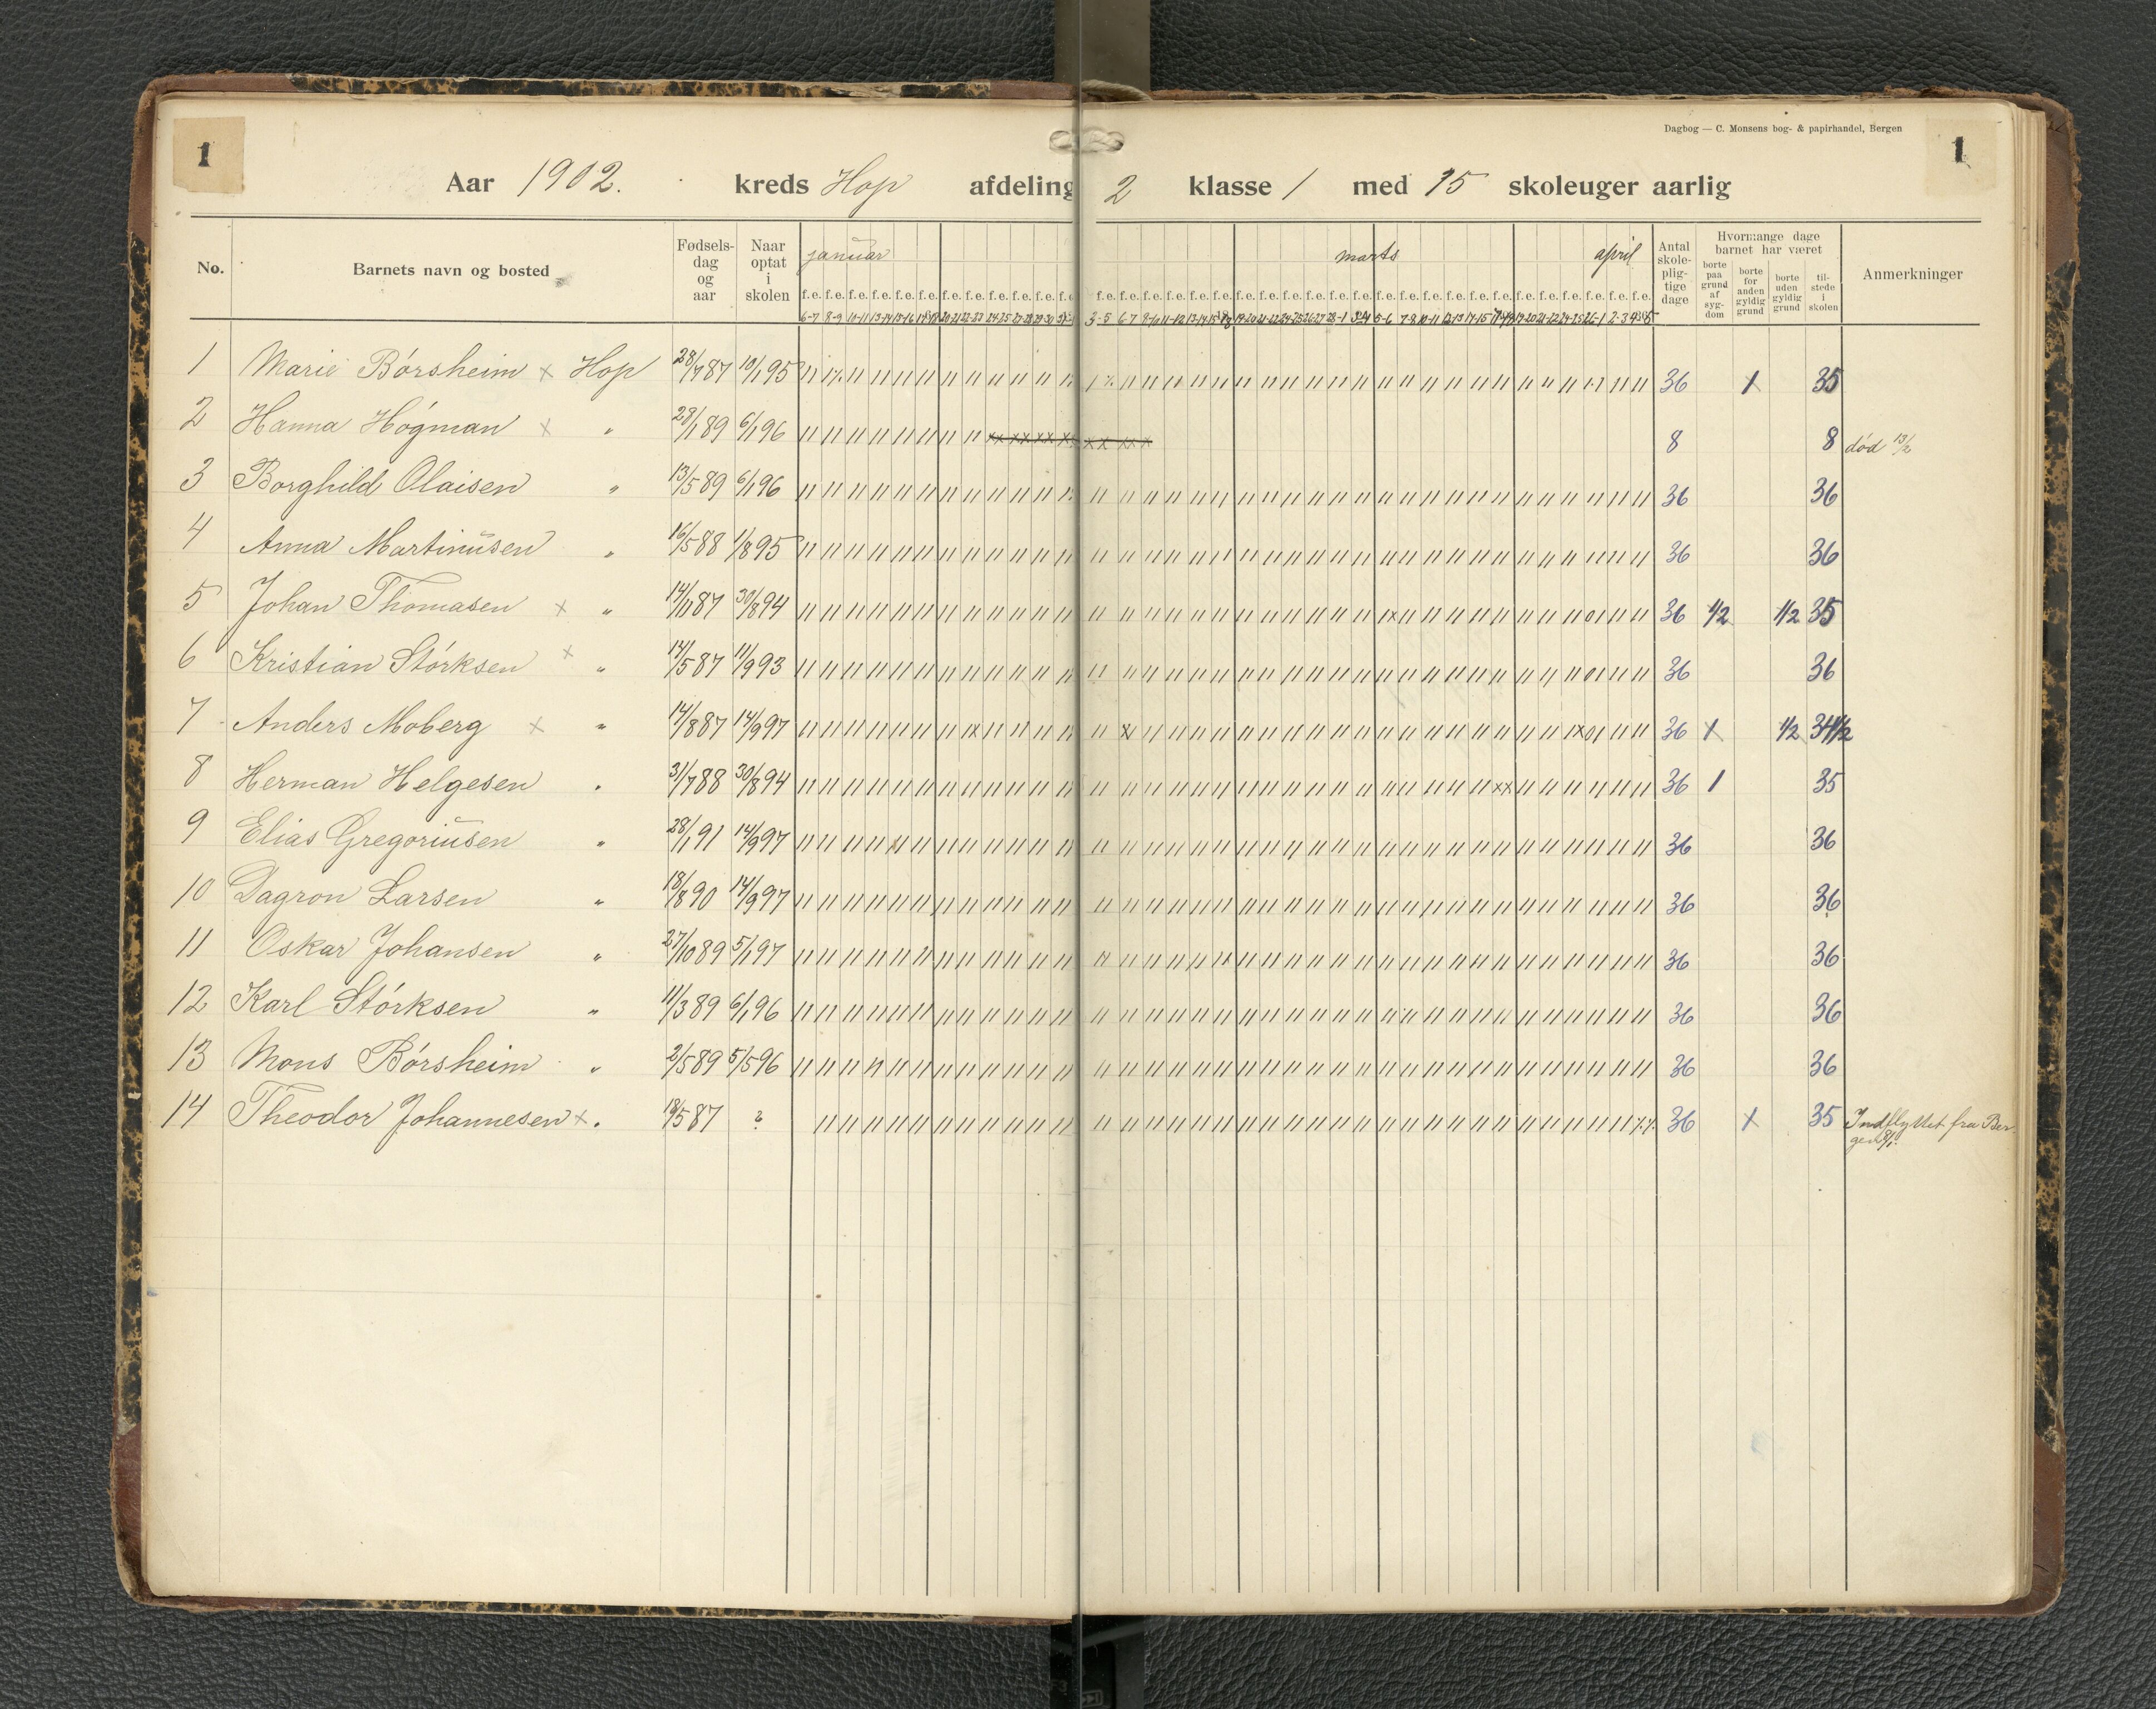 Dagbog — C. Monsens bog- & papirhandel, Bergen
1
1
Aar 1902. kreds Hop afdeling 2 klasse 1 med 15 skoleuger aarlig
No. Barnets navn og bosted Fødselsdag og aar Naar optat i skolen januar marts april Antal skolepligtige dage Hvormange dage barnet har været Anmerkninger
borte paa grund af sygdom borte for anden gyldig grund borte uden gyldig grund tilstede i skolen
1 Marie Börsheim x Hop 28/7 87 10/1 95 36 1 35
2 Hanna Högman x " 28/1 89 6/1 96 8 8 död 13/2
3 Borghild Olaisen " 13/5 89 6/1 96 36 36
4 Anna Martinusen " 16/5 88 1/8 95 36 36
5 Johan Thomasen x " 14/11 87 30/8 94 36 1/2 1/2 35
6 Kristian Störksen x " 14/5 87 11/9 93 36 36
7 Anders Moberg x " 14/8 87 14/9 97 36 1 1/2 34 1/2
8 Herman Helgesen " 31/7 88 30/8 94 36 1 35
9 Elias Gregoriusen " 28/1 91 14/9 97 36 36
10 Dagron Larsen " 18/8 90 14/9 97 36 36
11 Oskar Johansen " 27/10 89 5/1 97 36 36
12 Karl Störksen " 11/3 89 6/1 96 36 36
13 Mons Börsheim " 2/5 89 5/5 96 36 36
14 Theodor Johannesen x " 18/5 87 ? 36 1 35 Indflyttet fra Bergen